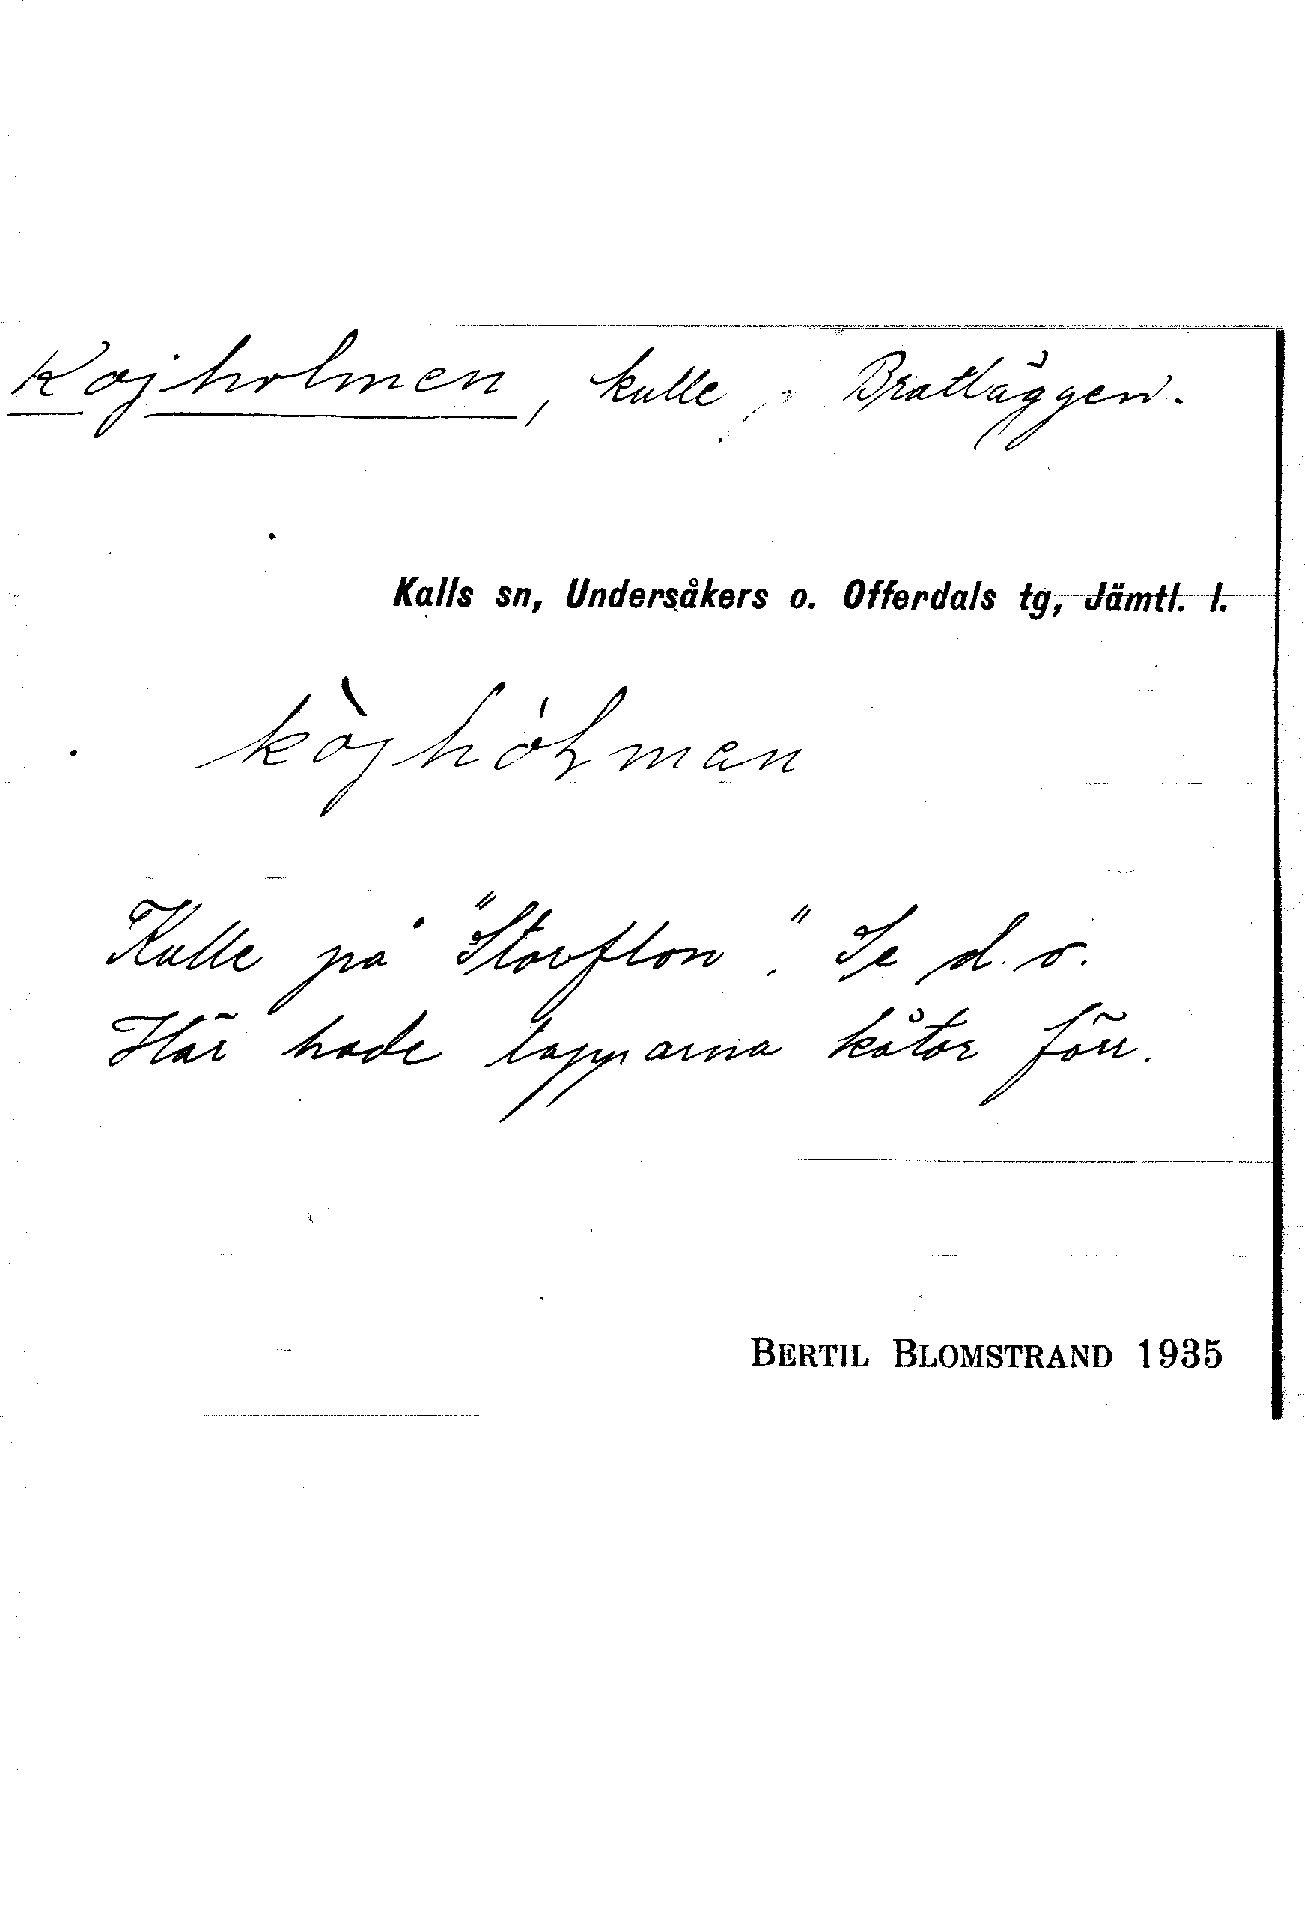 Kojholmen, kulle, Bratläggen.
Kalls sn, Undersåkers o. Offerdals tg, Jämtl. l.
kòjhólmen
Kulle på "Storflon". Se d. o.
Här hade lapparna kåtor förr.
BERTIL BLOMSTRAND 1935